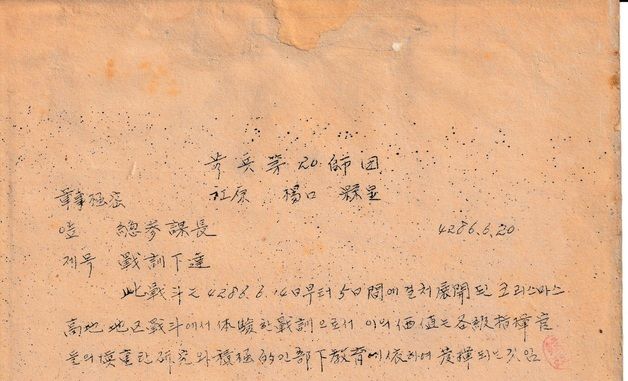 步兵第20師団
江原 楊口
軍事極密
總参課長 4286.6.20
제号 戰訓下達
此戰斗는 4286.6.14日부터 5日間에 걸처 展開된 크리스마스
高地 地区戰斗에서 体驗한 戰訓으로서 이의 価値는 各級指揮官
들의 慎重한 研究와 積極的인 部下敎育에 依하여 発揮되는 것임